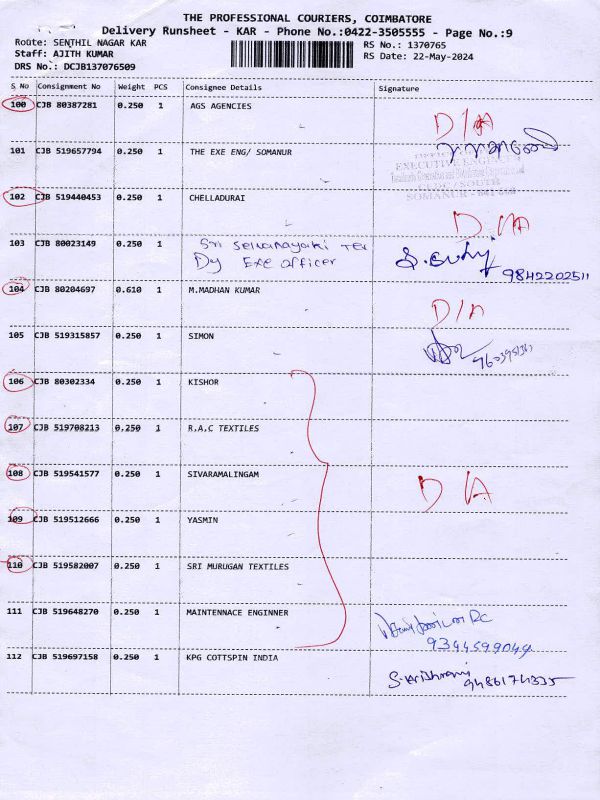 THE PROFESSIONAL COURIERS, COIMBATORE
Delivery Runsheet - KAR - Phone No.:0422-3505555 - Page No.:9
Route: SENTHIL NAGAR KAR RS No.: 1370765
Staff: AJITH KUMAR RS Date: 22-May-2024
DRS No.: DCJB137076509
S No Consignment No Weight PCS Consignee Details Signature
100 CJB 80387281 0.250 1 AGS AGENCIES
D/A
101 CJB 519657794 0.250 1 THE EXE ENG/ SOMANUR
EXECUTIVE ENGINEER
SOMANUR
102 CJB 519440453 0.250 1 CHELLADURAI
D/A
103 CJB 80023149 0.250 1 Sri Selvanayaki Tex
Dy Exe officer
9842202511
104 CJB 80204697 0.610 1 M.MADHAN KUMAR
D/A
105 CJB 519315857 0.250 1 SIMON
106 CJB 80302334 0.250 1 KISHOR
107 CJB 519708213 0.250 1 R,A,C TEXTILES
108 CJB 519541577 0.250 1 SIVARAMALINGAM
D/A
109 CJB 519512666 0.250 1 YASMIN
110 CJB 519582007 0.250 1 SRI MURUGAN TEXTILES
111 CJB 519648270 0.250 1 MAINTENNACE ENGINNER
112 CJB 519697158 0.250 1 KPG COTTSPIN INDIA